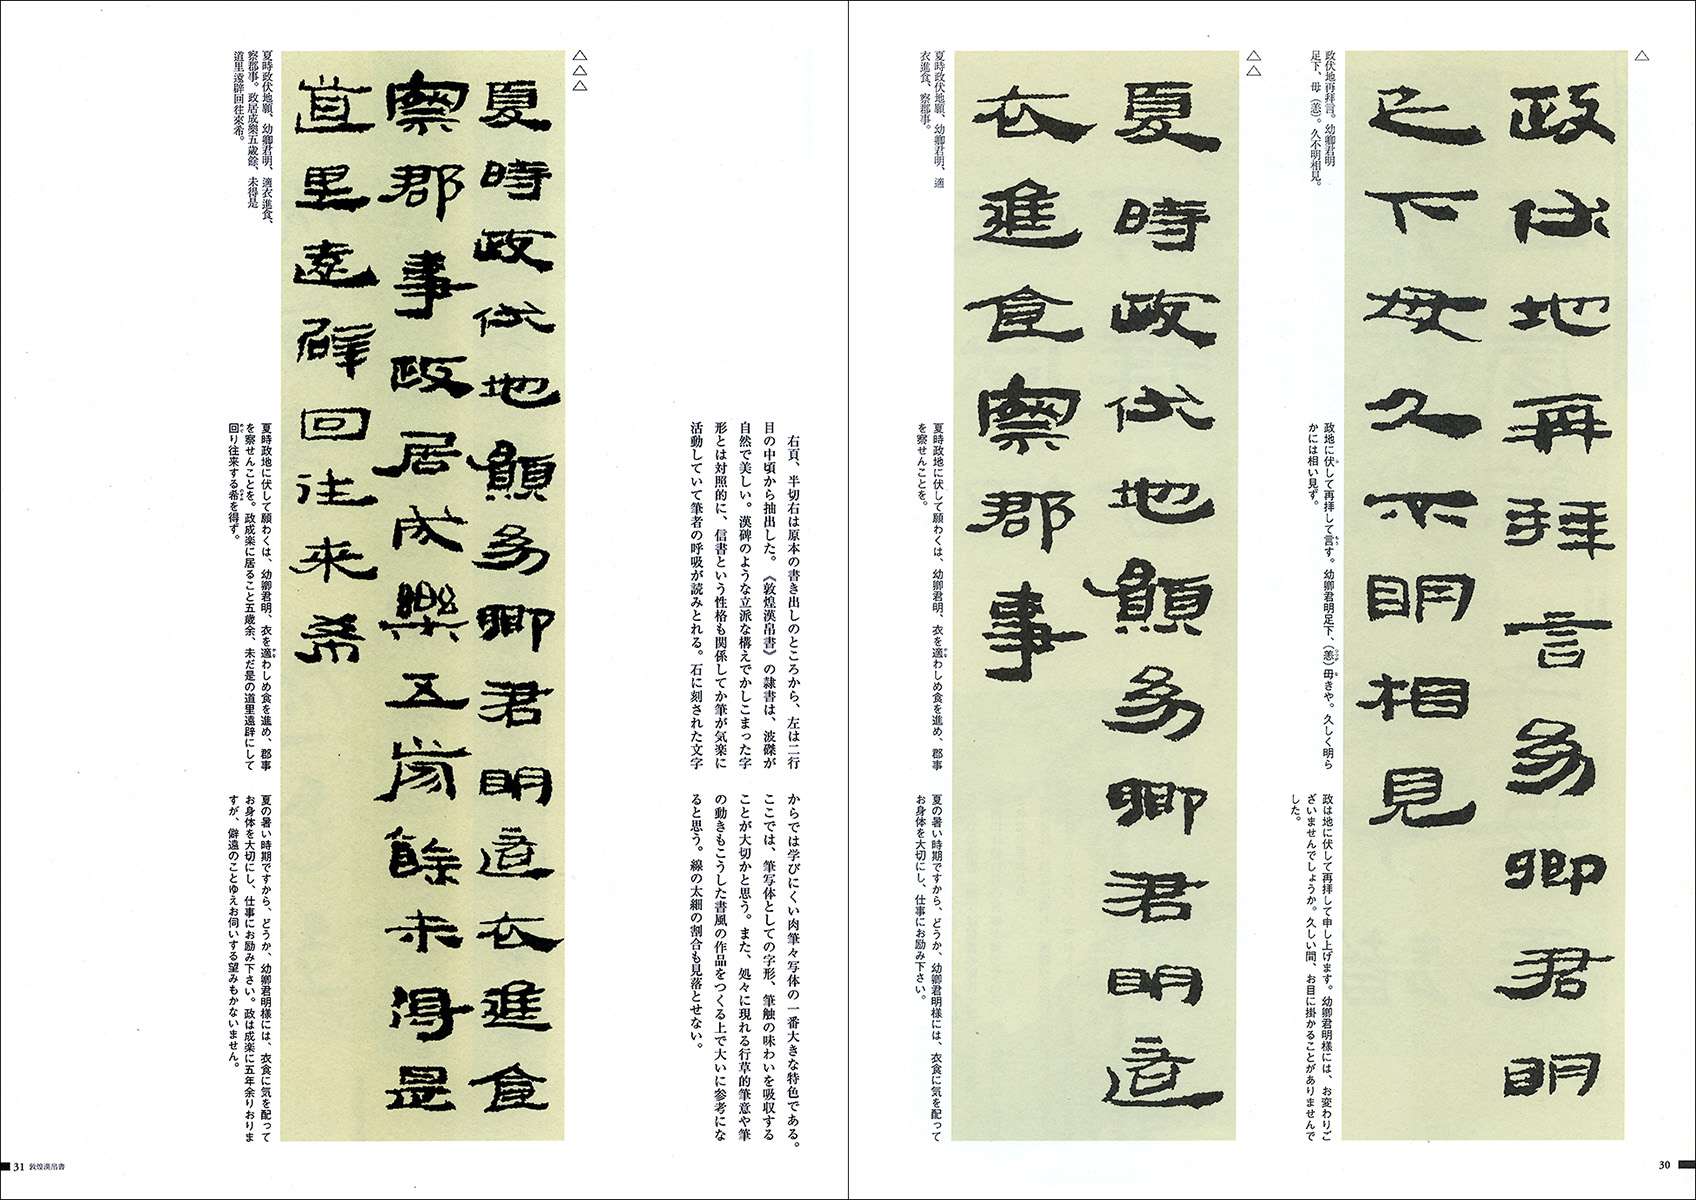 △
政伏地再拝言。幼卿君明
足下、毋(恙)。久不明相見。
政伏地再拜言幼卿君明
足下毋久不明相見
政地に伏して再拝して言す。幼卿君明足下、(恙)毋きや。久しく明ら
かには相い見ず。
政は地に伏して再拝して申し上げます。幼卿君明様には、お変わりご
ざいませんでしょうか。久しい間、お目に掛かることがありませんで
した。
△△
夏時政伏地願、幼卿君明、適
衣進食、察郡事。
夏時政伏地願幼卿君明適
衣進食察郡事
夏時政地に伏して願わくは、幼卿君明、衣を適わしめ食を進め、郡事
を察せんことを。
夏の暑い時期ですから、どうか、幼卿君明様には、衣食に気を配って
お身体を大切にし、仕事にお励み下さい。
30
右頁、半切右は原本の書き出しのところから、左は二行
目の中頃から抽出した。《敦煌漢帛書》の隷書は、波磔が
自然で美しい。漢碑のような立派な構えでかしこまった字
形とは対照的に、信書という性格も関係してか筆が気楽に
活動していて筆者の呼吸が読みとれる。石に刻された文字
からでは学びにくい肉筆々写体の一番大きな特色である。
ここでは、筆写体としての字形、筆触の味わいを吸収する
ことが大切かと思う。また、処々に現れる行草的筆意や筆
の動きもこうした書風の作品をつくる上で大いに参考にな
ると思う。線の太細の割合も見落とせない。
△△△
夏時政伏地願、幼卿君明、適衣進食、
察郡事。政居成樂五歳餘、未得是
道里遠辟回往來希。
夏時政伏地願幼卿君明適衣進食
察郡事政居成樂五歳餘未得是
道里遠辟回往来希
夏時政地に伏して願わくは、幼卿君明、衣を適わしめ食を進め、郡事
を察せんことを。政成楽に居ること五歳余、未だ是の道里遠辟にして
回り往来する希を得ず。
夏の暑い時期ですから、どうか、幼卿君明様には、衣食に気を配って
お身体を大切にし、仕事にお励み下さい。政は成楽に五年余りおりま
すが、僻遠のことゆえお伺いする望みもかないません。
31 敦煌漢帛書